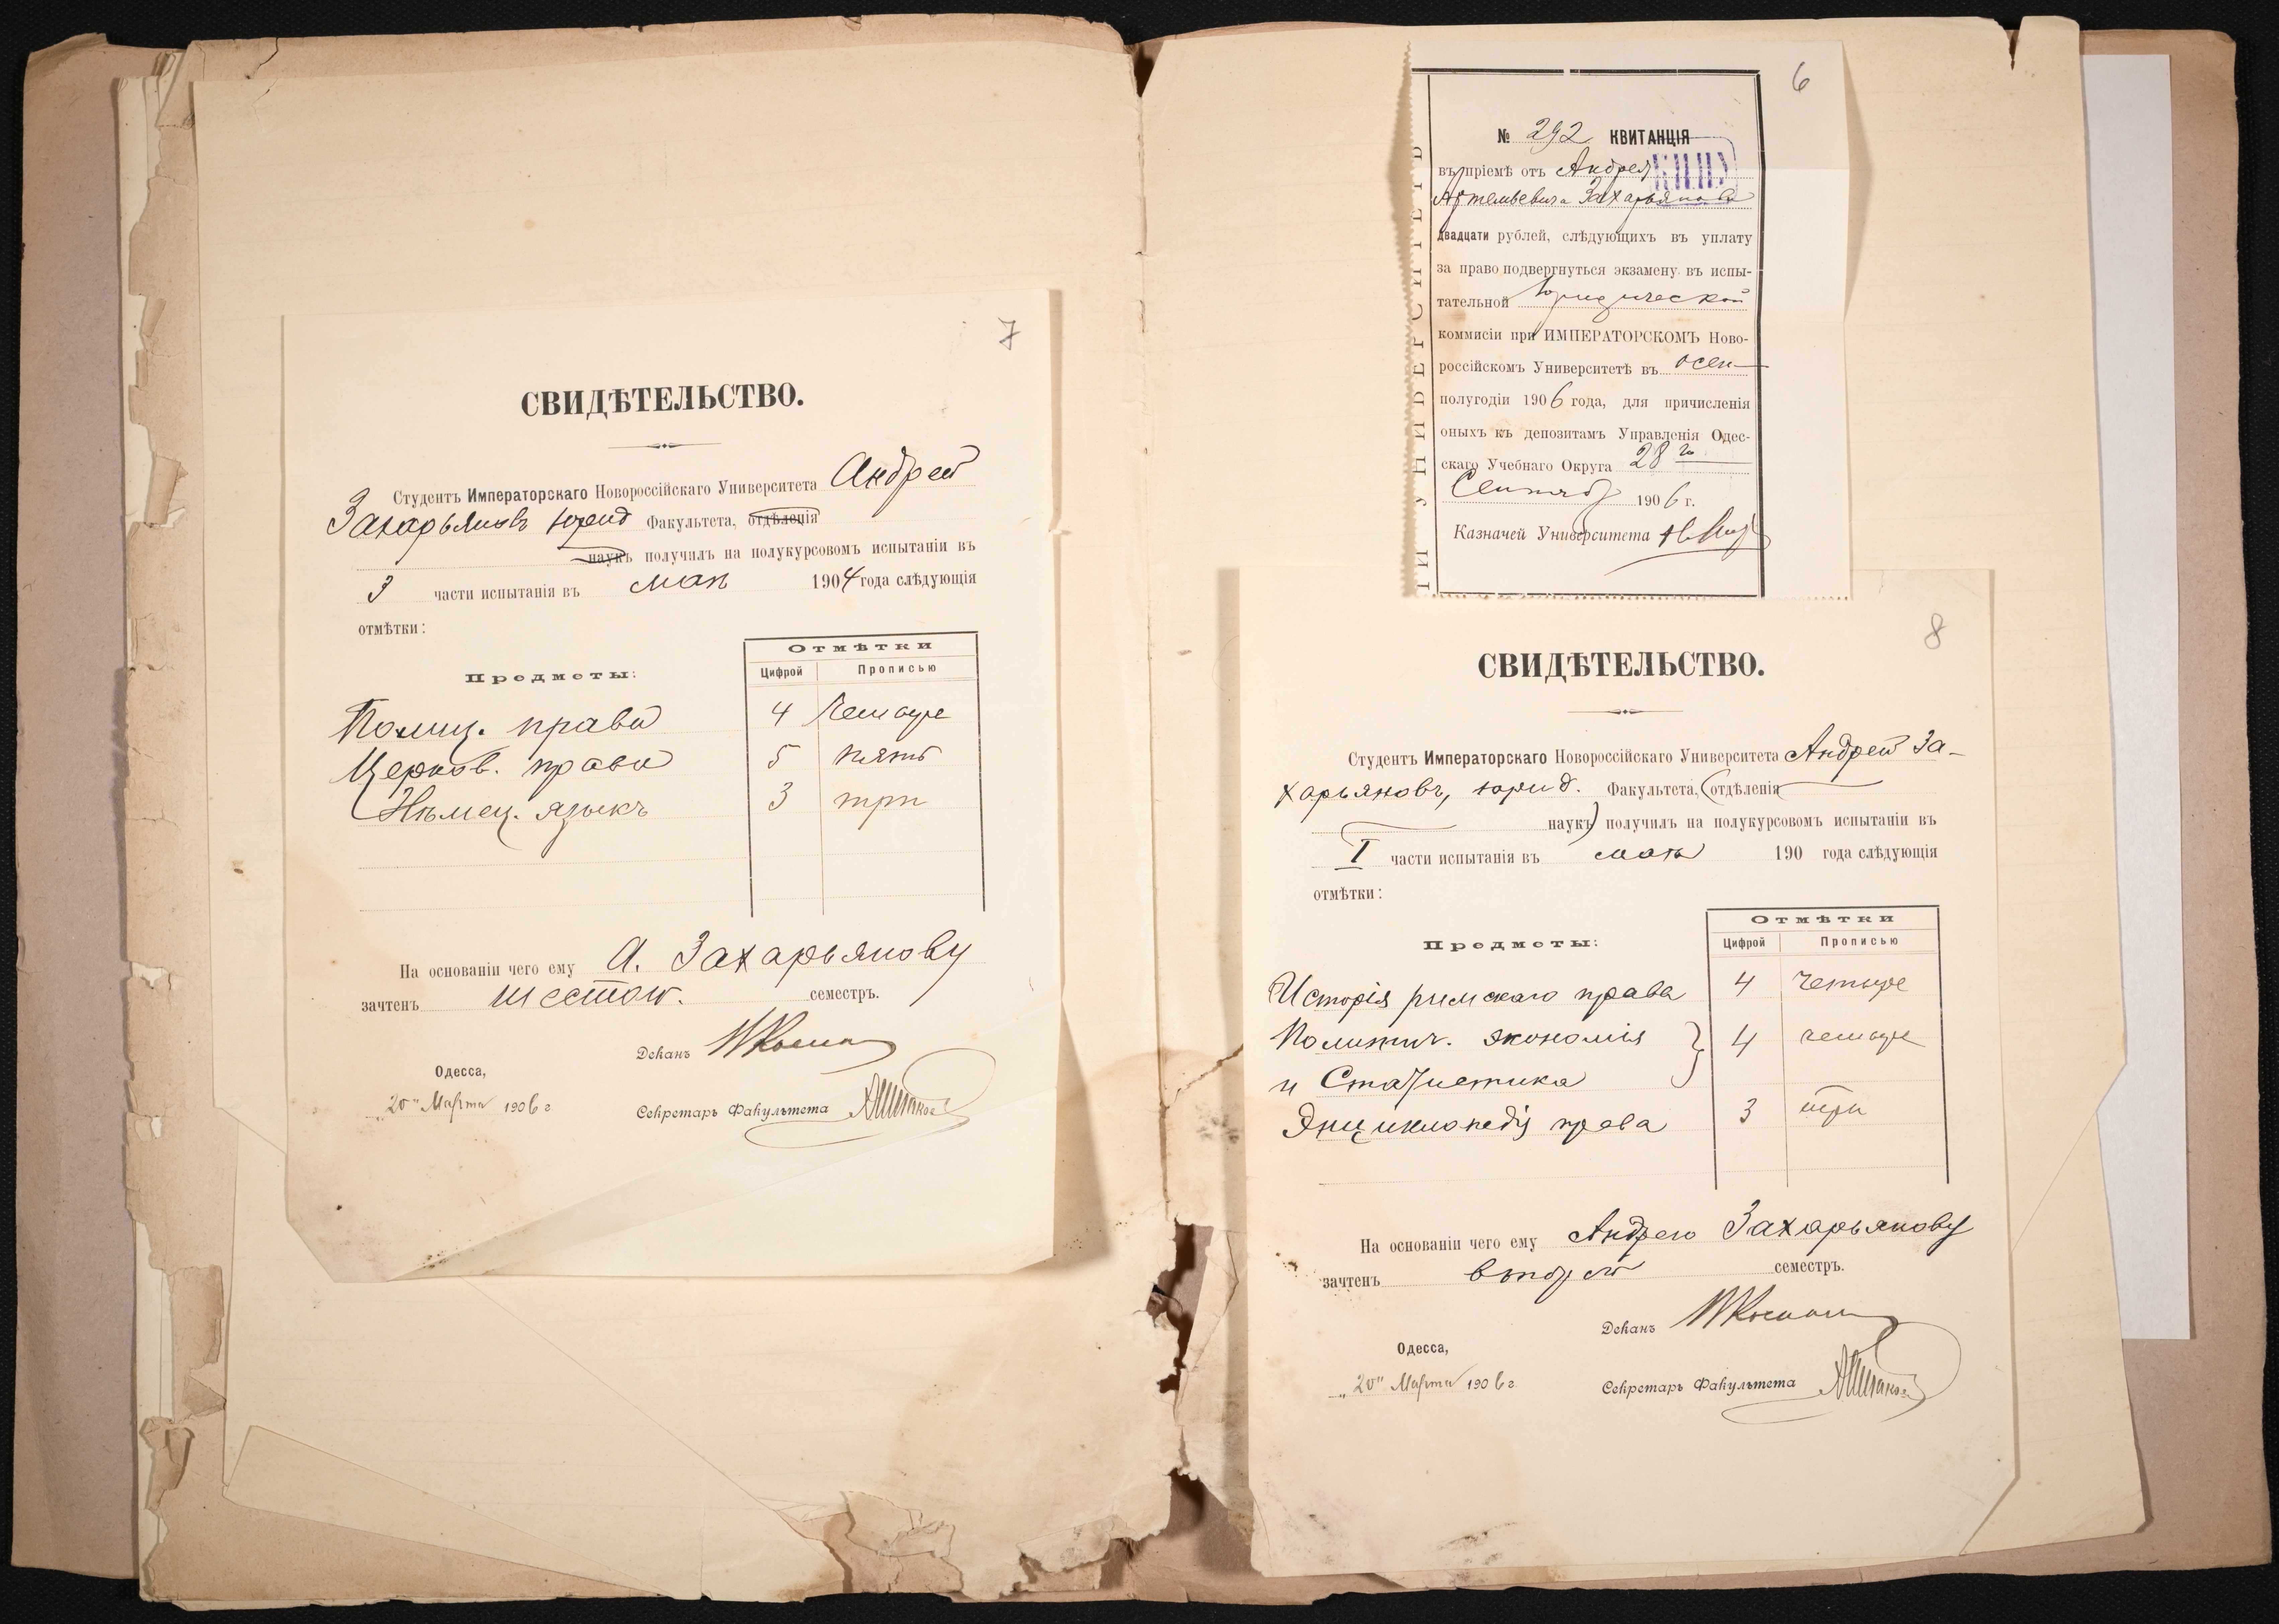 7
СВИДѢТЕЛЬСТВО.
Студентъ Императорскаго Новороссійскаго Университета Андрей
Захарьяновъ юрид Факультета, отдѣленія
наукъ получилъ на полукурсовомъ испытаніи въ
3 части испытанія въ маѣ 1904 года слѣдующія
отмѣтки:
Предметы:
Отмѣтки
Цифрой Прописью
Полиц. право 4 Четыре
Церков. право 5 пять
Нѣмец. языкъ 3 три
На основаніи чего ему А. Захарьянову
зачтенъ шестой. семестръ.
Деканъ
Одесса,
„20" Марта 1906 г
Секретарь Факультета
6
№ 292 КВИТАНЦІЯ
въ пріемѣ отъ Андрея
Артемьевича Захарьянова
двадцати рублей, слѣдующихъ въ уплату
за право подвергнуться экзамену въ испы-
тательной Юридической
коммисіи при ИМПЕРАТОРСКОМЪ Ново-
россійскомъ Университетѣ въ осен
полугодіи 1906 года, для причисленія
оныхъ къ депозитамъ Управленія Одес-
скаго Учебнаго Округа 28 го
Сентяб 1906 г.
Казначей Университета
УНИВЕРСИТЕТЪ
8
СВИДѢТЕЛЬСТВО.
Студентъ Императорскаго Новороссійскаго Университета Андрей За-
харьяновъ, юрид. Факультета, (отдѣленія
наукъ) получилъ на полукурсовомъ испытаніи въ
I части испытанія въ маѣ 190 года слѣдующія
отмѣтки:
Предметы:
Отмѣтки
Цифрой Прописью
Исторія римскаго права 4 четыре
Политич. экономія } 4 четыре
и Статистика
Энциклопедія права 3 три
На основаніи чего ему Андрею Захарьянову
зачтенъ второй семестръ.
Деканъ
Одесса,
„20" Марта 1906 г
Секретарь Факультета